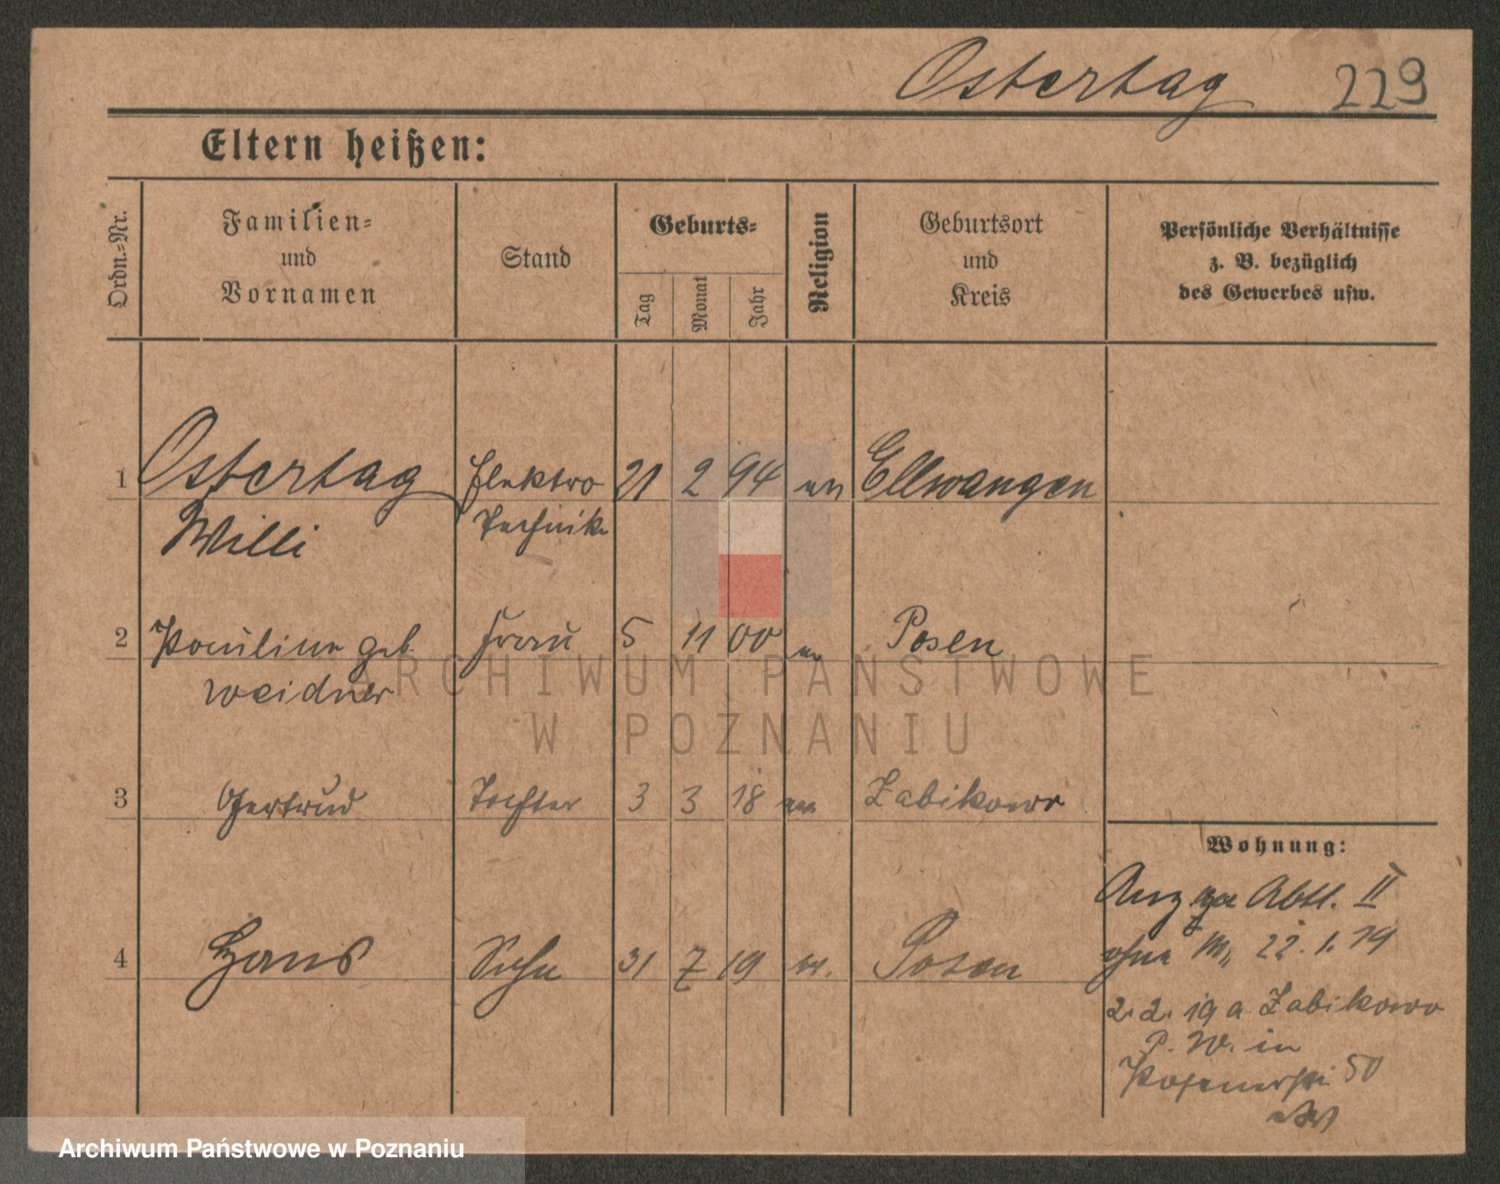 Ostertag 229
Eltern heißen:
Ordn.-Nr.
Familien- und Vornamen
Stand
Geburts-
Tag Monat Jahr
Religion
Geburtsort und Kreis
Persönliche Verhältnisse z. B. bezüglich des Gewerbes usw.
1 Ostertag Elektro 21 2 94 ev Ellwangen
Willi Technik
2 Pauline geb. Frau 5 11 00 Posen
Weidner
3 Gertrud Tochter 3 3 18 Zabikowo
Wohnung:
Abtl. II
4 Hans Sohn 31 7 19 ev. Posen
ohne 22. 1. 19
2. 2. 19 a Zabikowo
P. W. in
50
ARCHIWUM PAŃSTWOWE
W POZNANIU
Archiwum Państwowe w Poznaniu